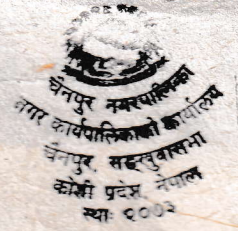 चैनपुर नगरपालिका
नगर कार्यपालिकाको कार्यालय
चैनपुर, सङ्खुवासभा
कोशी प्रदेश, नेपाल
स्थाः २०७३